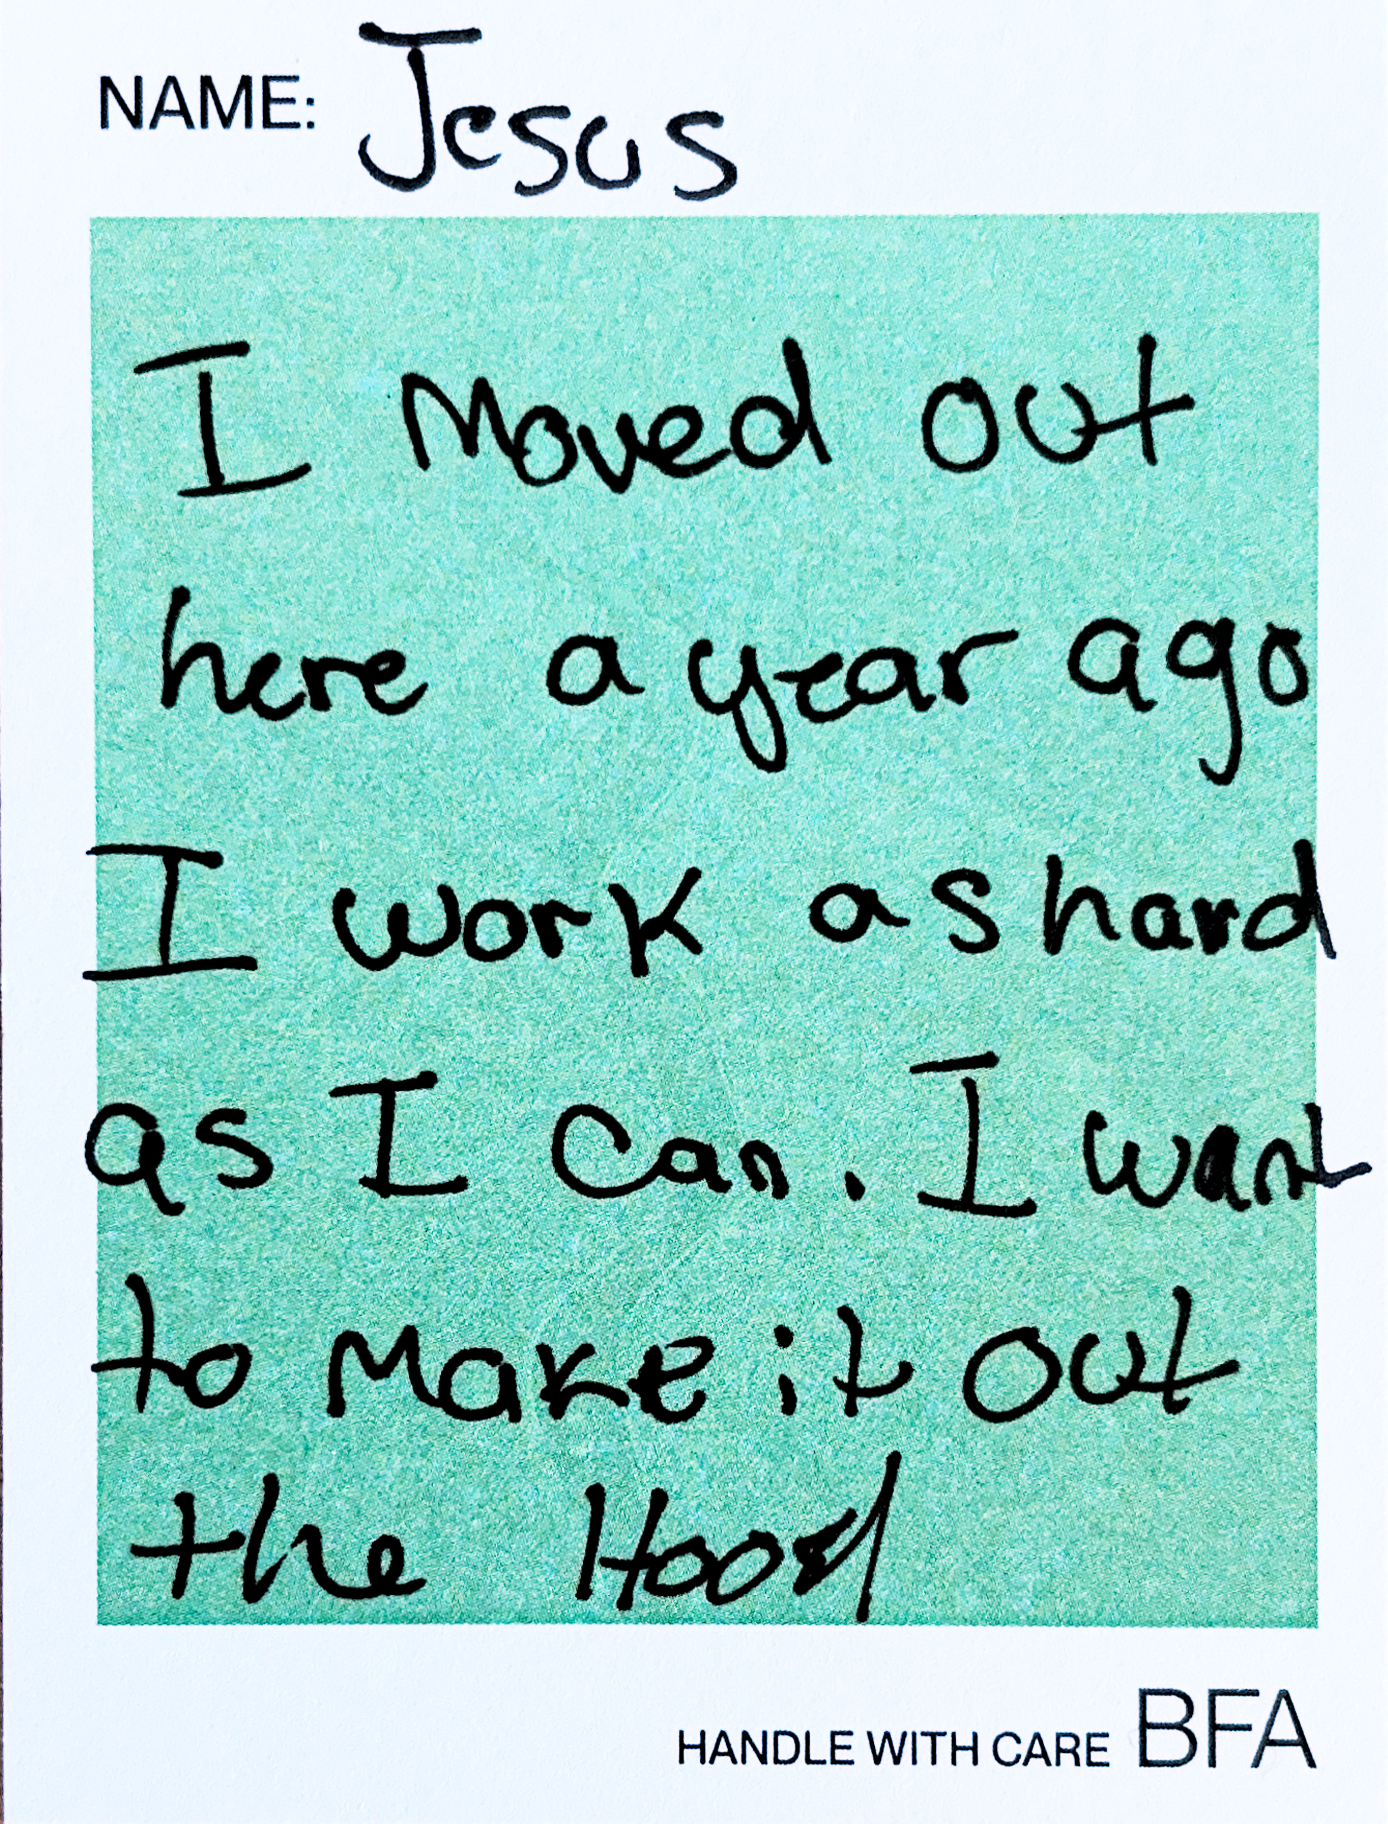 NAME: Jesus
I Moved out
here a year ago
I work as hard
as I can. I want
to make it out
the Hood
HANDLE WITH CARE BFA